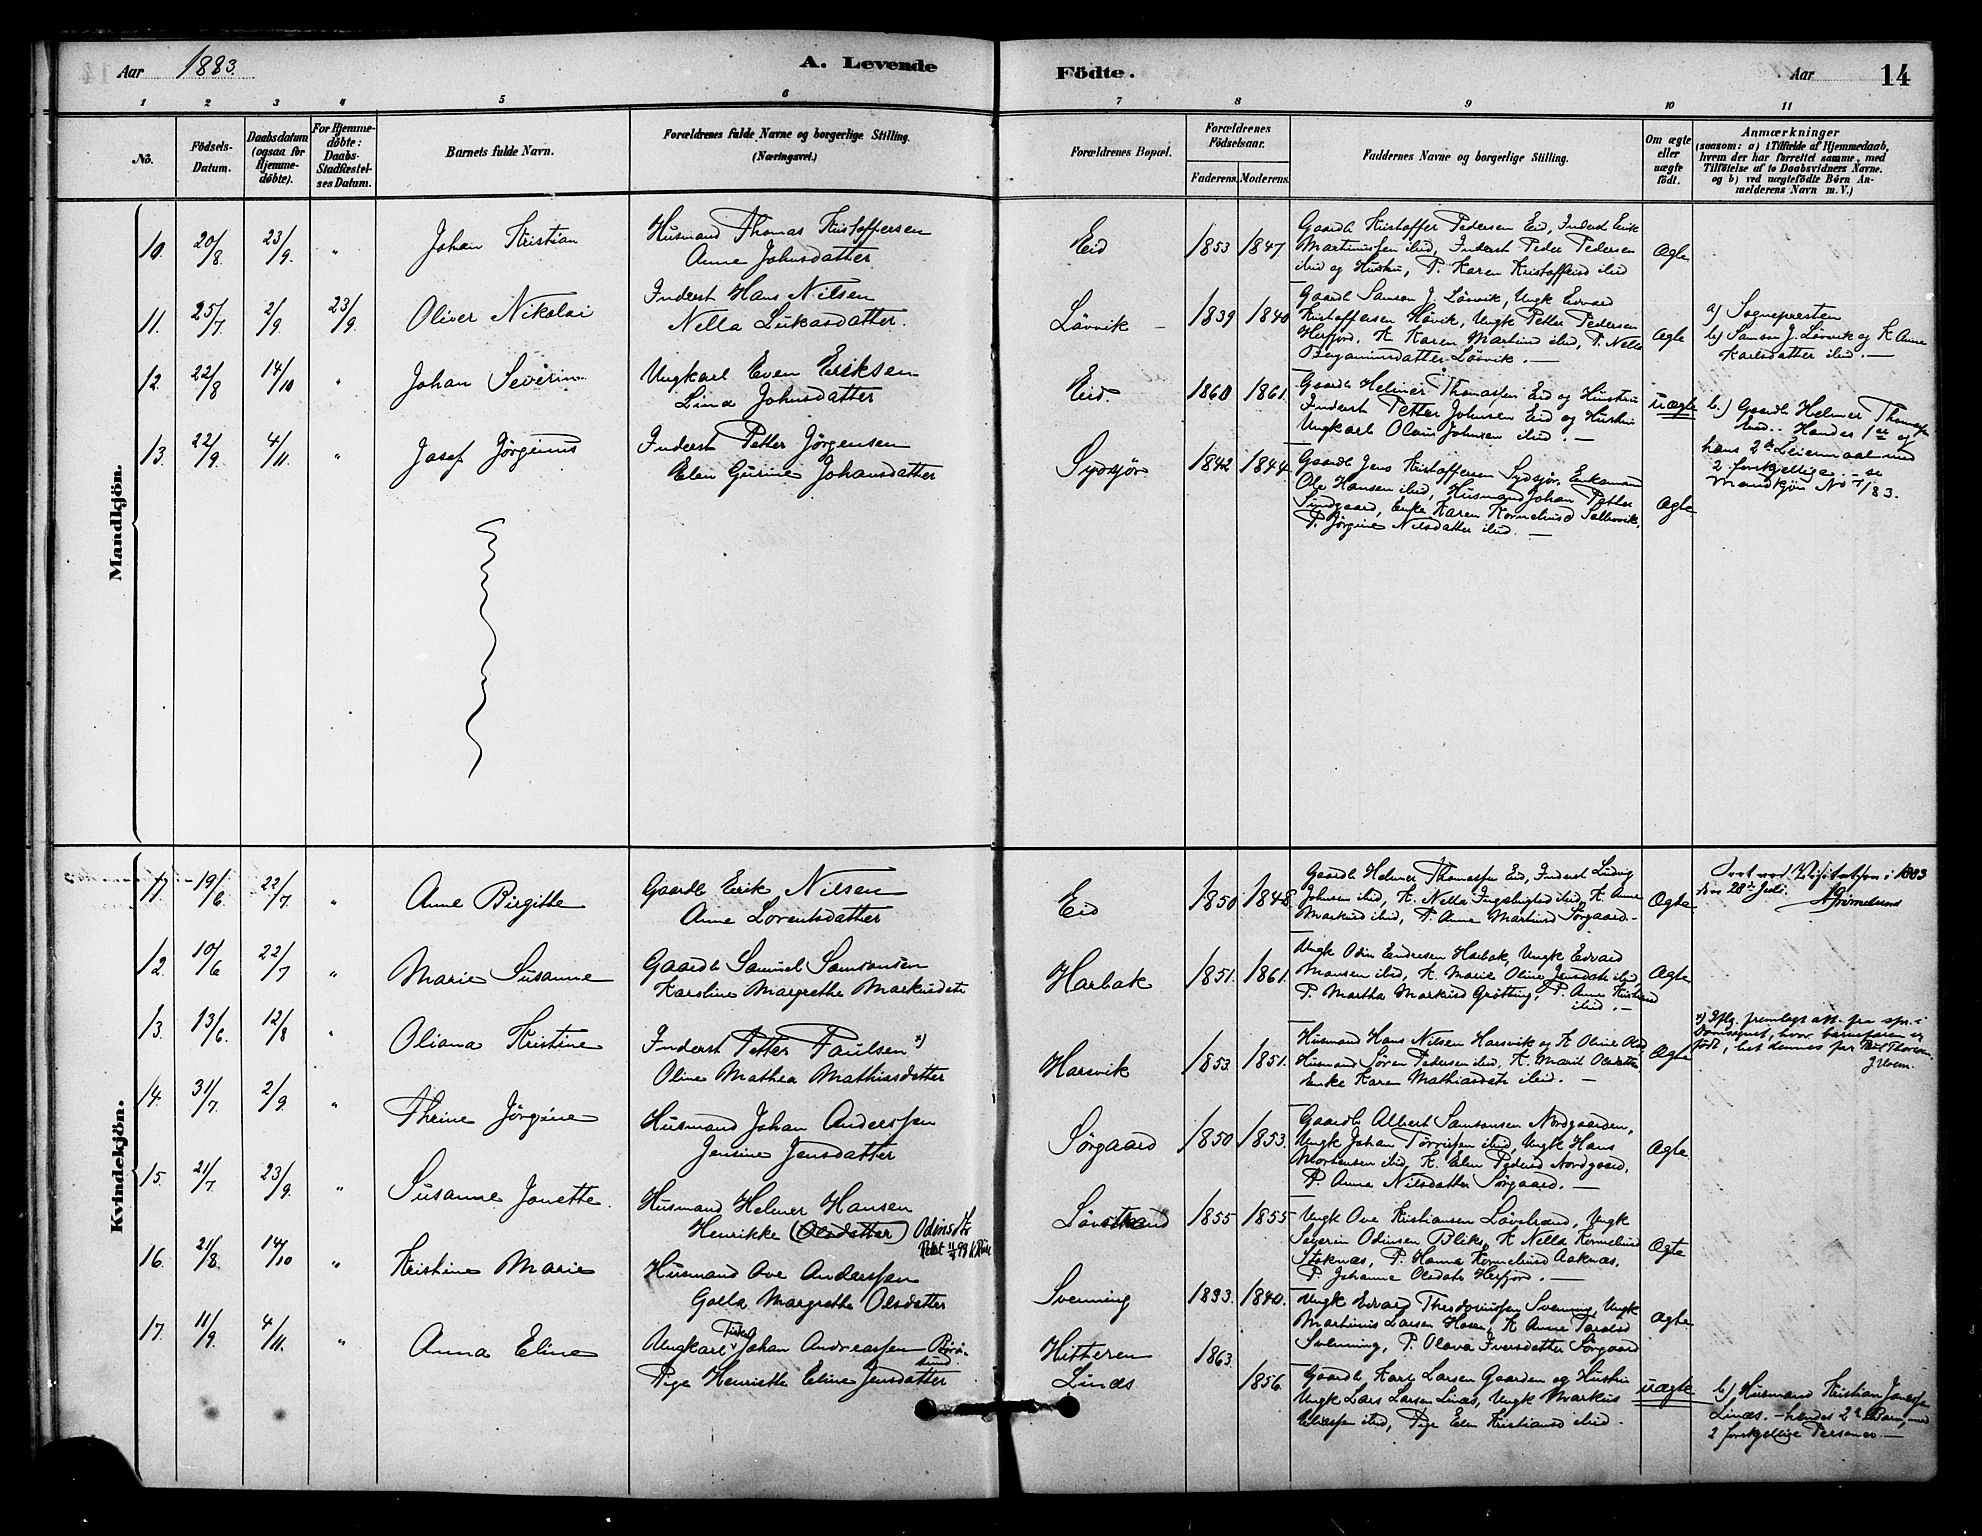 Aar 1883.
A. Levende
Födte.
Aar
14
1
2
3
4
5
6
7
8
9
10
11
No.
Födsels-
Datum.
Daabsdatum
(ogsaa for
Hjemme-
döbte).
For Hjemme-
döbte:
Daabs-
Stadfæstel-
ses Datum.
Barnets fulde Navn.
Forældrenes fulde Navne og borgerlige Stilling.
(Næringsvei.)
Forældrenes Bopæl.
Forældrenes
Födselsaar.
Faderens.
Moderens.
Faddernes Navne og borgerlige Stilling.
Om ægte
eller
uægte
födt.
Anmærkninger
(saasom: a) i Tilfælde af Hjemmedaab,
hvem der har forrettet samme, med
Tilföielse af to Daabsvidners Navne.
og b) ved uægtefödte Börn An-
melderens Navn m. V.)
Mandkjön.
10. 20/8 23/9. " Johan Kristian
Husmand Thomas Kristoffersen
Anne Johnsdatter
Eid 1853 1847
Gaardb Kristoffer Pedersen Eid, Inderst Erik
Martinussen ibid, Inderst Peder Pedersen
ibid og Hustru, P. Karen Kristoffersd ibid
Ægte
11. 25/7 2/9. 23/9. Oliver Nikolai
Inderst Hans Nilsen
Nella Lukasdatter.
Lövvik 1839 1840
Gaardb Samson J. Lövvik, Ungk Edvard
Kristoffersen Hövik, Ungk Petter Pedersen
Herfjord, K. Karen Martina ibid, P. Nella
Benjaminsdatter Lövvik. —
Ægte
a) Sognepresten
b) Samson J. Lövvik og K Anne
Karlsdatter ibid. —
12. 22/8 14/10 " Johan Severin
Ungkarl Even Eriksen
Lina Johnsdatter
Eid. 1860 1861.
Gaardb Helmer Thomassen Eid og Hustru
Inderst Petter Johnsen Eid og Hustru
Ungkarl Olaus Johnsen ibid. —
uægte
b.) Gaardb Helmer Thomassen
Eid. Handes 1ste og
hans 2de Leiermaal med
2 forskjellige. — se
Mandkjön No 7/83.
13. 22/9 4/11. " Josef Jörginus
Inderst Petter Jörgensen
Elen Gurine Johansdatter
Sydsjör 1842 1844
Gaardb Jens Kristoffersen Sydsjör, Enkemand
Ole Hansen ibid, Husmand Johan Petter
Sundgaard, Enke Karen Kornelius Selbervik,
P. Jörgine Nilsdatter ibid. —
Ægte
Kvindekjön.
11. 19/6. 22/7. " Anne Birgitte
Gaardb Erik Nilsen
Anne Lorentsdatter
Eid 1850 1848.
Gaardb Helmer Thomassen Eid, Inderst Ludvig
Johnsen ibid, K. Nella Ingebrigtsd ibid, K. Anne
Markusd ibid, P. Anne Martina Sörgaard. —
Ægte
Seet ved Visitatsen i 1883
den 28de Juli.
12. 10/6 22/7 " Marie Susanne
Gaardb Samuel Samsonsen
Karoline Margrethe Markusdtr
Harbak 1851. 1861.
Ungk Odin Endresen Harbak, Ungk Edvard
Monsen ibid, K. Marie Oline Jensdatr ibid,
P. Martha Markusd Grötting, P. Anne Kristiansd
ibid. —
Ægte
13. 13/6. 12/8 " Oliana Kristine
Inderst Petter Paulsen x)
Oline Mathea Mathiasdatter
Harsvik 1853. 1851.
Husmand Hans Nilsen Harsvik og K Oline Olsd
Husmand Sören Pedersen ibid, K. Marit Olsdatter
Enke Karen Mathiasdatr ibid. —
Ægte
14. 31/7. 2/9. " Theine Jörgine
Husmand Johan Anderssen
Jensine Jensdatter
Sörgaard 1850 1853.
Gaardb Albert Samsonsen Nordgaarden,
Ungk Johan Törrisen ibid, Ungk Hans
Mortensen ibid, K. Elen Pedersd Nordgaard,
P. Anna Nilsdatter Sörgaard. —
Ægte
15. 21/7. 23/9. " Susanne Jonette.
Husmand Helmer Hansen
Henrikke (Olsdatter) Odinsdtr
Lövstrand 1855 1855
Ungk Ove Kristiansen Lövstrand, Ungk
Severin Odinsen Bliks, K Nella Kornelinsd
Stoknæs, P. Hanna Kornelinsd Aaknæs,
P. Johanna Olsdatr Herfjord. —
Ægte
16. 21/8. 14/10 " Kristine Marie
Husmand Ove Anderssen
Golla Margrethe Olsdatter
Svenning 1833. 1840.
Ungk Edvard Theodorinssen Svenning, Ungk
Martinus Larsen Hosen, K Anne Taralsd
Svenning, P. Olava Iversdatter Sörgaard
Ægte
17. 11/9. 4/11. " Anna Eline
Ungkarl Johan Andreassen Börö-
sund.
Pige Henriette Eline Jensdatter
Hitteren 1863.
Linæs 1856.
Gaardb Karl Larsen Gaarden og Hustru
Ungk Lars Larsen Linæs, Ungk Markus
Eliassen ibid, Pige Elen Kristiansd ibid.
uægte
b) Husmand Kristian Jonassen
Linæs. — hendes 2det Barn, med
2 forskjellige Personer —